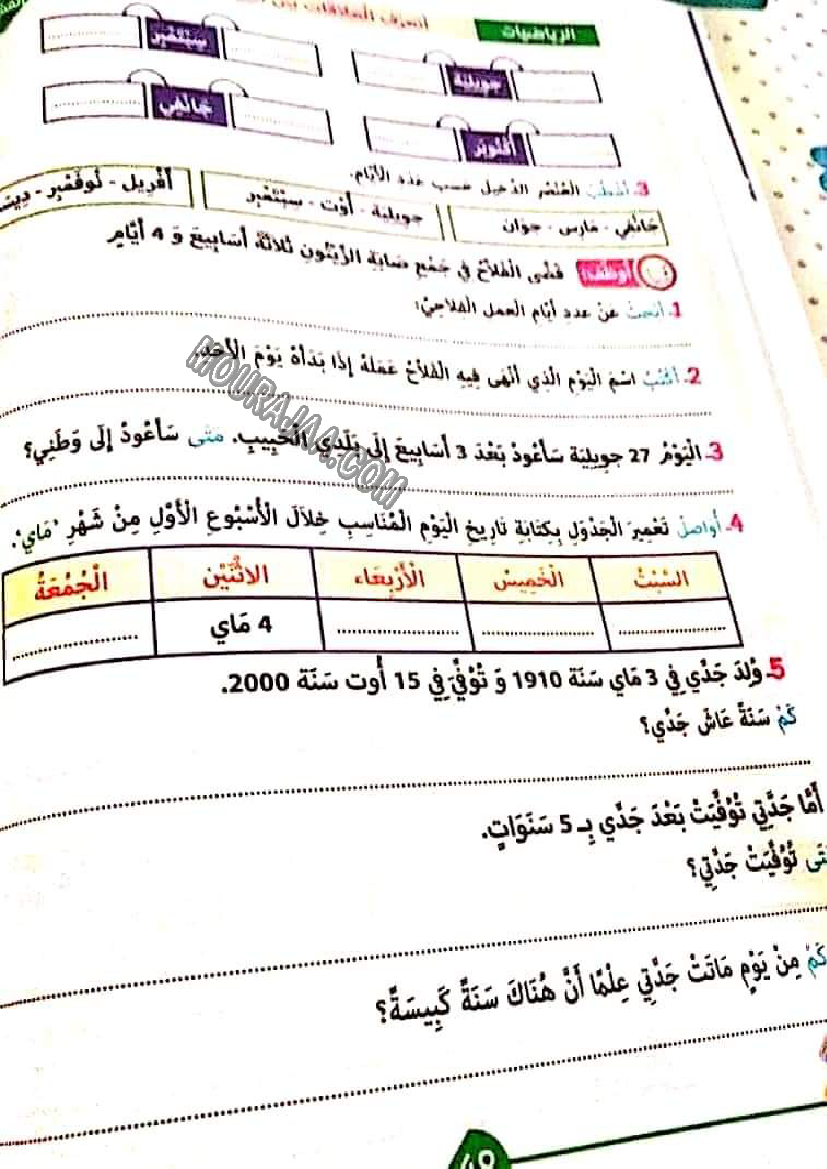 الرياضيات
سِبْتَمْبِر
جويلية
جَانْفِي
أُكْتُوبَر
3. أَشْطُبُ الْعُنْصُرَ الدَّخِيلَ حَسَبَ عَدَدِ الْأَيَّامِ.
جَانْفِي - مَارِس - جوَان
جويلية - أوت - سِبْتَمْبِر
أَفْرِيل - نُوفَمْبِر -
قَضَّى الْفَلَّاحُ فِي جَمْعِ صَابَةِ الزَّيْتُونِ ثَلَاثَةَ أَسَابِيعَ وَ 4 أَيَّامٍ
1. أَبْحَثُ عَنْ عَدَدِ أَيَّامِ الْعَمَلِ الْفِلَاحِيِّ:
2. أَكْتُبُ اسْمَ الْيَوْمِ الَّذِي أَنْهَى فِيهِ الْفَلَّاحُ عَمَلَهُ إِذَا بَدَأَهُ يَوْمَ الْأَحَدِ.
MOURAJAA.COM
3. الْيَوْمُ 27 جويلية سَأَعُودُ بَعْدَ 3 أَسَابِيعَ إِلَى بَلَدِي الْحَبِيبِ. مَتَى سَأَعُودُ إِلَى وَطَنِي؟
4. أُوَاصِلُ تَعْمِيرَ الْجَدْوَلِ بِكِتَابَةِ تَارِيخِ الْيَوْمِ الْمُنَاسِبِ خِلَالَ الْأُسْبُوعِ الْأَوَّلِ مِنْ شَهْرِ "مَاي".
السَّبْتُ الْخَمِيسُ الْأَرْبِعَاء الاثْنَيْن الْجُمُعَةُ
4 مَاي
5. وُلِدَ جَدِّي فِي 3 مَاي سَنَة 1910 وَ تُوُفِّيَ فِي 15 أوت سَنَة 2000.
كَمْ سَنَةً عَاشَ جَدِّي؟
أَمَّا جَدَّتِي تُوُفِّيَتْ بَعْدَ جَدِّي بِـ 5 سَنَوَاتٍ.
مَتَى تُوُفِّيَتْ جَدَّتِي؟
كَمْ مِنْ يَوْمٍ مَاتَتْ جَدَّتِي عِلْمًا أَنَّ هُنَاكَ سَنَةً كَبِيسَةً؟